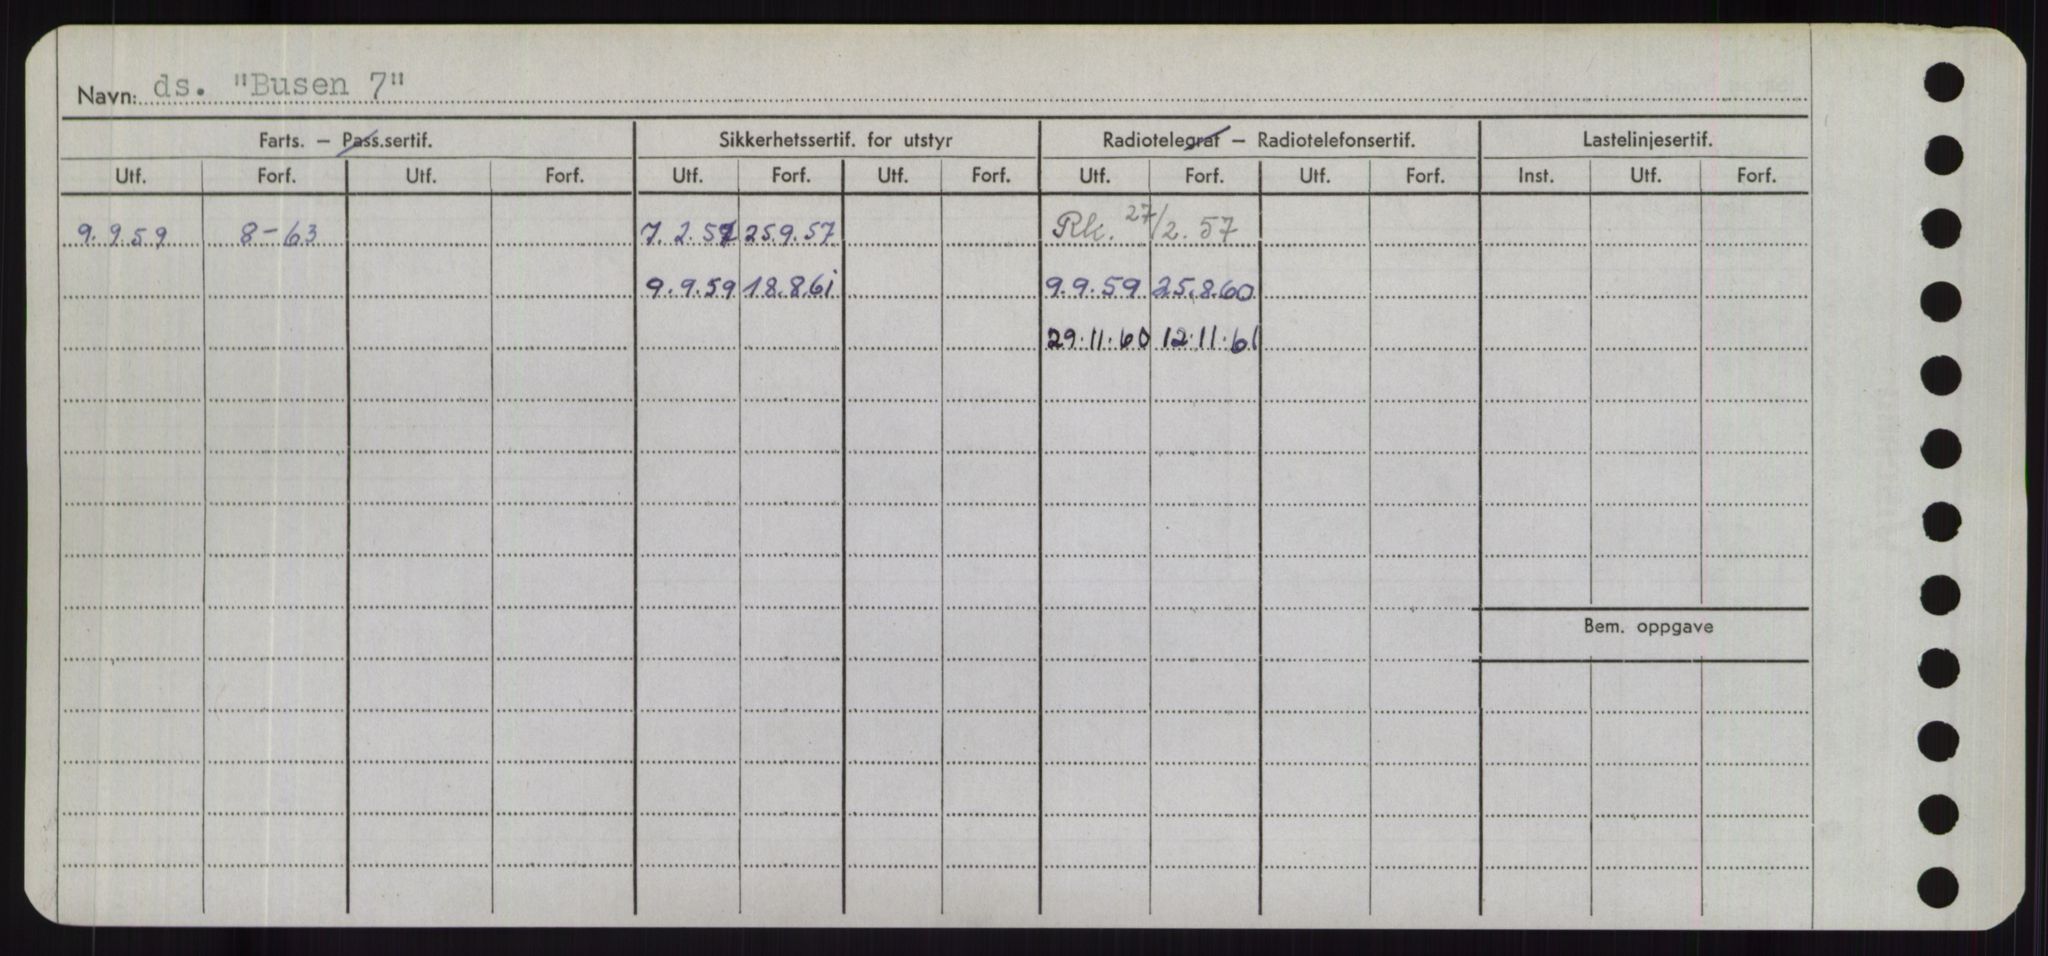 Navn: ds. "Busen 7"
Farts. — Pass.sertif. Sikkerhetssertif. for utstyr Radiotelegraf — Radiotelefonsertif. Lastelinjesertif.
Utf. Forf. Utf. Forf. Utf. Forf. Utf. Forf. Utf. Forf. Utf. Forf. Inst. Utf. Forf.
9.9.59 8-63 7.2.57 25.9.57 Rk. 27/2.57
9.9.59 18.8.61 9.9.59 25.8.60
29.11.60 12.11.61
Bem. oppgave